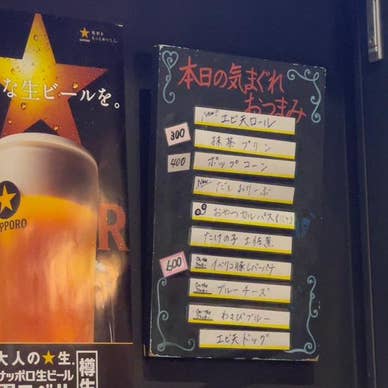 な生ビールを。
PPORO
R
大人の★生.
サッポロ生ビール
樽生
本日の気まぐれ
おつまみ
New! エビ天ロール
300 抹茶プリン
400 ポップコーン
New! だし おりーぶ
おやつカルパス
たけの子 土佐煮
600 イベリコ豚レバーパテ
ブルーチーズ
わさびブルー
エビ天ドッグ